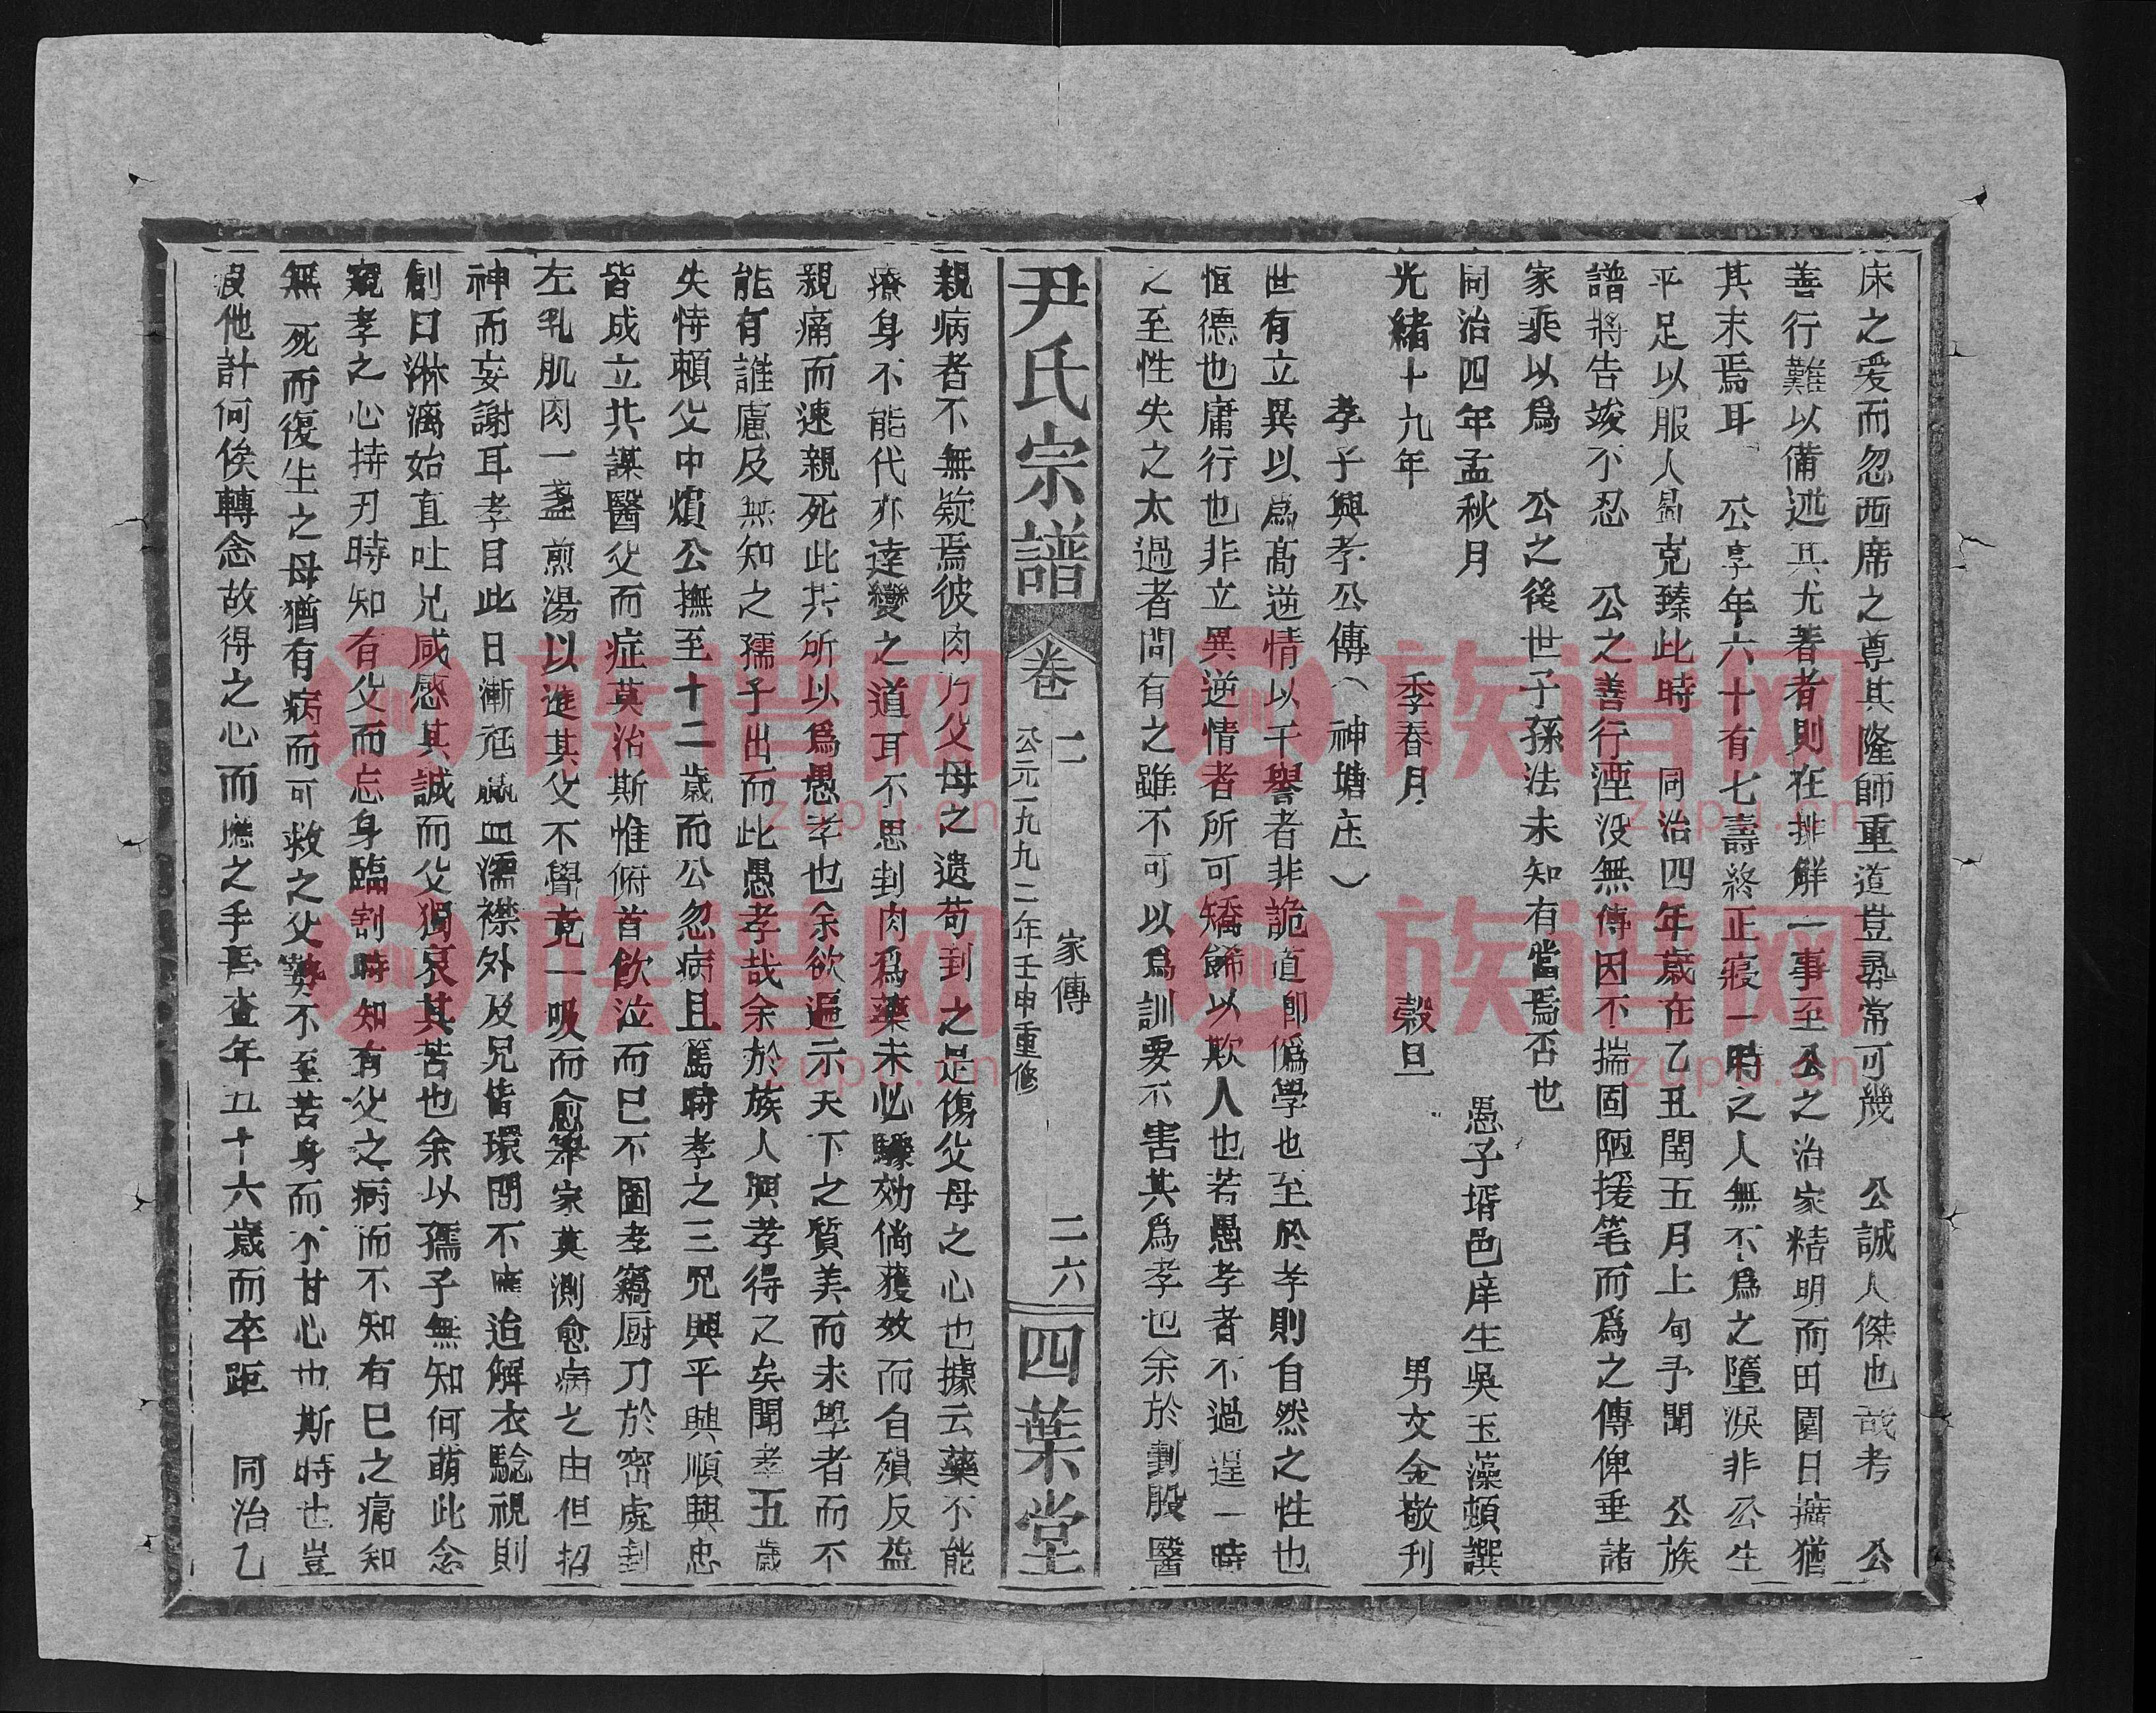 床之爱而忽西席之尊其隆師重道豈尋常可幾　公誠人傑也哉考　公
善行難以備述其尤著者則在排解一事至公之治家精明而田園日擴猶
其末焉耳　公享年六十有七壽終正寢一時之人無不為之墮淚非公生
平足以服人曷克臻此時　同治四年歲在乙丑閏五月上旬予聞　公族
譜將告竣不忍　公之善行湮没無傳因不揣固陋援笔而爲之傳俾垂諸
家乘以爲　公之後世子孫法未知有當焉否也
同治四年孟秋月　愚子壻邑庠生吳玉藻頓譔
光緒十九年　季春月　穀旦　男文金敬刊
孝子興孝公傳（神塘庄）
世有立異以爲髙逆情以干譽者非詭道即僞學也至於孝則自然之性也
恒德也庸行也非立異逆情者所可矯餙以欺人也若愚孝者不過逞一時
之至性失之太過者問有之雖不可以爲訓要不害其爲孝也余於刲股醫
尹氏宗譜　卷二　家傳　公元一九九二年壬申重修　二六　四葉堂
親病者不無疑焉彼肉乃父母之遺苟刲之足傷父母之心也據云藥不能
療身不能代亦達變之道耳不思刲肉爲藥未必驟効倘獲效而自殞反益
親痛而速親死此其所以爲愚孝也余欲遍示天下之質美而未學者而不
能有誰慮及無知之孺子出而此愚孝哉余於族人興孝得之矣聞孝五歲
失恃頼父中煩公撫至十二歲而公忽病且篤時孝之三兄興平興順興忠
皆成立共謀醫父而症莫治斯惟俯首飲泣而已不圖孝竊厨刀於密處刲
左乳肌肉一盞煎湯以進其父不覺竟一吸而愈舉家莫測愈病之由但招
神而妄謝耳孝目此日漸尪羸血濡襟外及兄皆環問不應迨解衣驗視則
創曰淋漓始直吐兄咸感其誠而父獨哀其苦也余以孺子無知何萌此念
窺孝之心持刃時知有父而忘身臨割時知有父之病而不知有巳之痛知
無死而復生之母猶有病而可救之父勢不至苦身而不甘心也斯時也豈
復他計何俟轉念故得之心而應之手吾查年五十六歲而卒距　同治乙